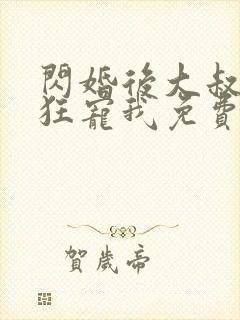 閃婚後大叔
狂寵我免費
賀歲帝